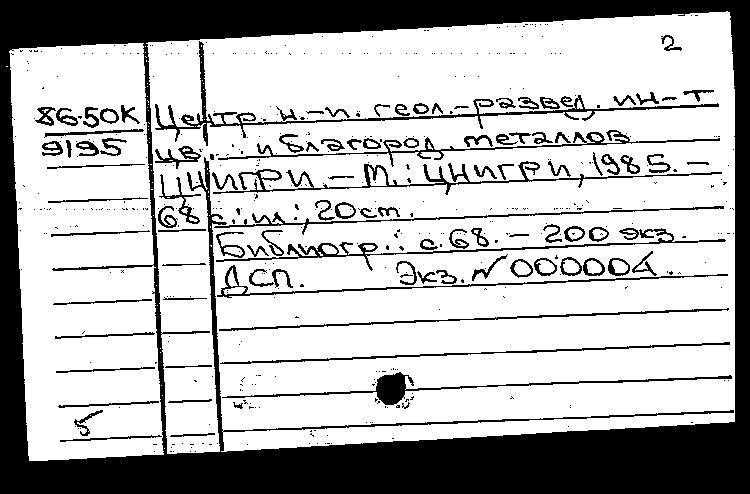 2
86-50К Центр. н.-и. геол.-развед. ин-т
9195 цв. и благород. металлов
ЦНИГРИ. – М.: ЦНИГРИ, 1985. –
68 с.: ил.; 20 см.
Библиогр.: с. 68. – 200 экз.
ДСП. Экз. № 000004.
5